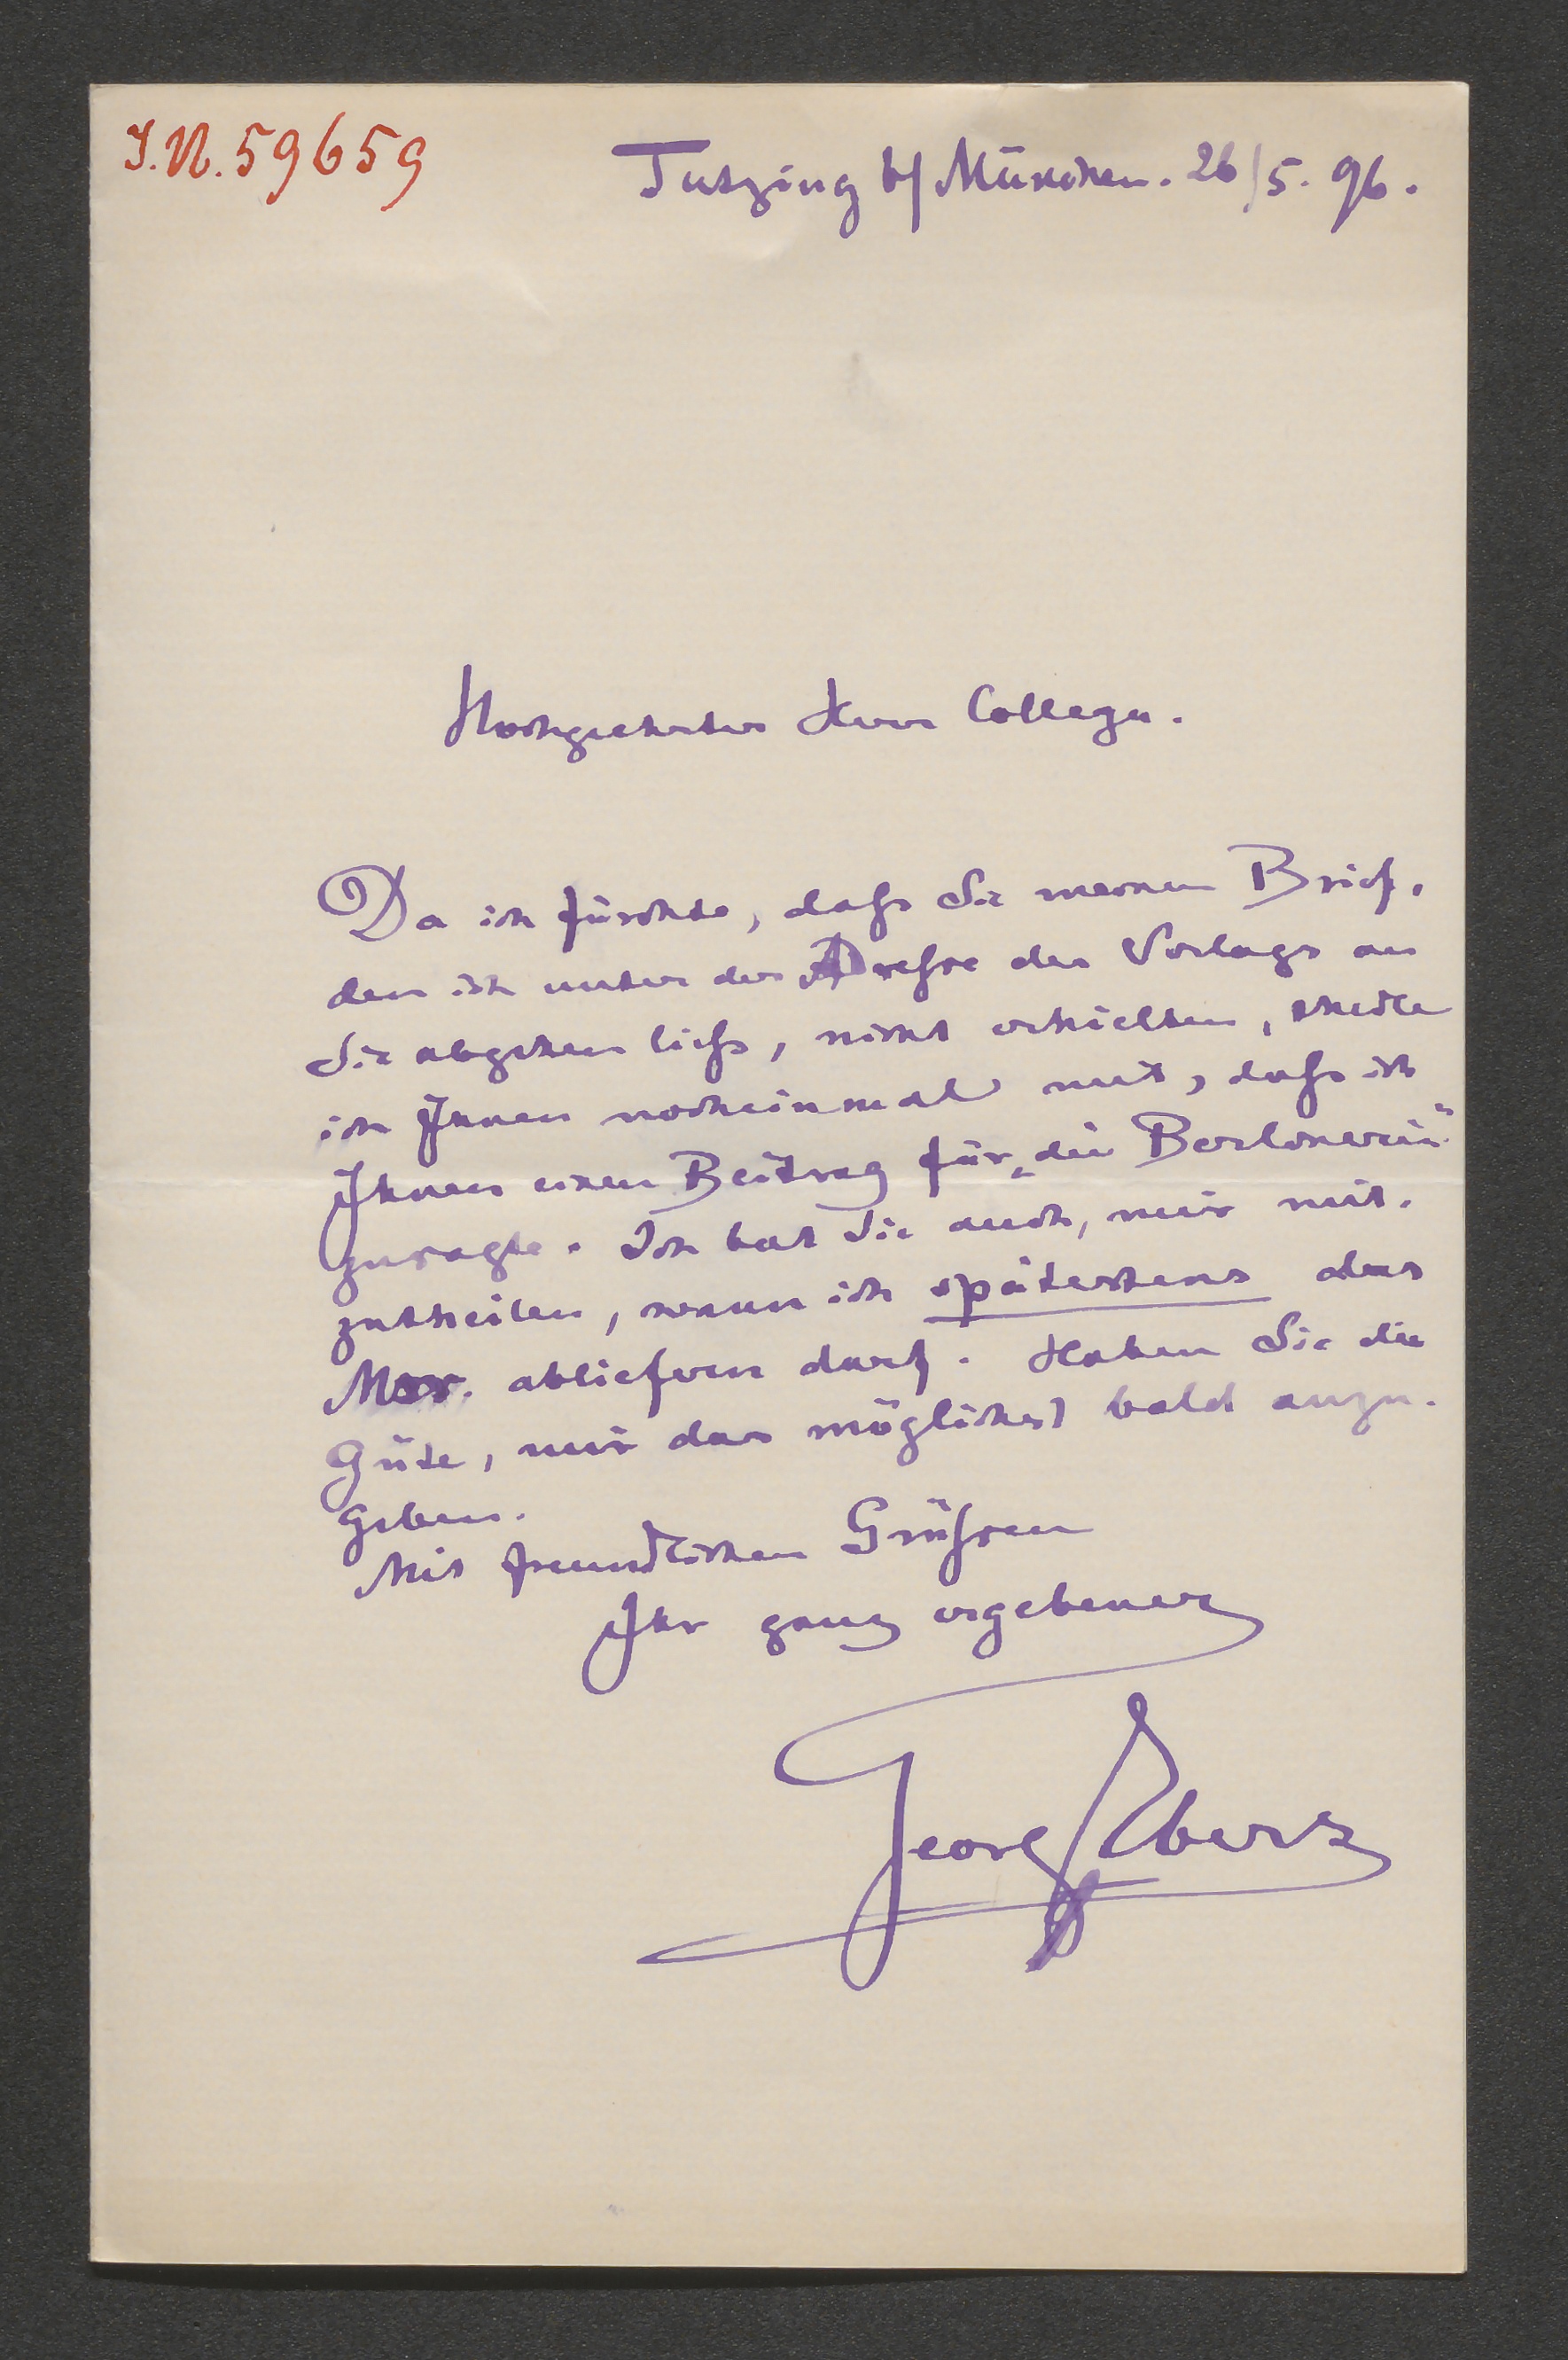 I.N. 59659
Tutzing b/ München. 26/5. 96.
Hochgeehrter Herr College.
Da ich fürchte, dafs Sie meinen Brief,
den ich unter der Adresse des Verlags an
Sie abgehen liefs, nicht erhielten, theile
ich Ihnen nocheinmal mit, dafs ich
Ihnen einen Beitrag für „die Berlinerin"
zusagte. Ich bat Sie auch, mir mit-
zutheilen, wann ich spätestens das
Mscr. abliefern darf. Haben Sie die
Güte, mir das möglichst bald anzu-
geben.
Mit freundlichen Grüfsen
Ihr ganz ergebener
Georg Ebers